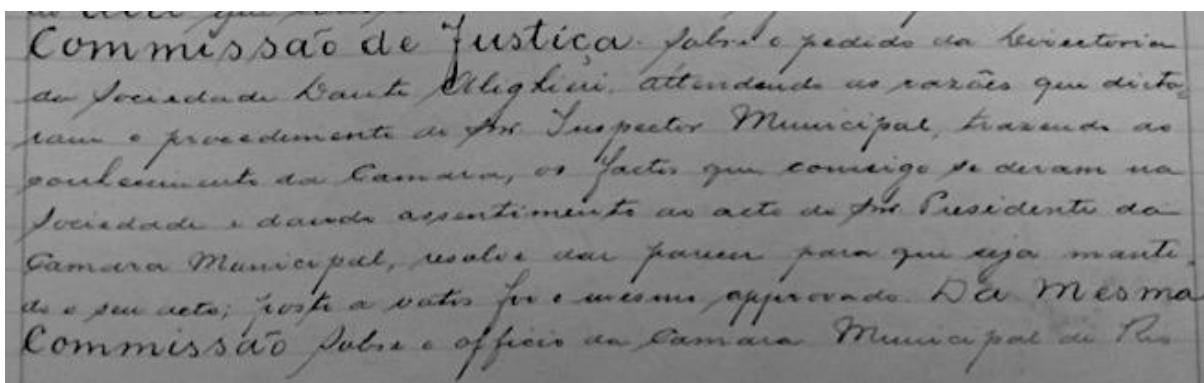 Commissão de Justiça. Sobre o pedido da Directoria
da Sociedade Dante Alighieri, attendendo as razões que dicta-
ram o procedimento do Snr. Inspector Municipal, trazendo ao
conhecimento da Camara, os factos que comsigo se deram na
Sociedade e dando assentimento ao acto do Snr. Presidente da
Camara Municipal, resolve dar parecer para que seja manti-
do o seu acto; posto a votos foi o mesmo approvado. Da Mesma
Commissão Sobre o officio da Camara Municipal de Rio